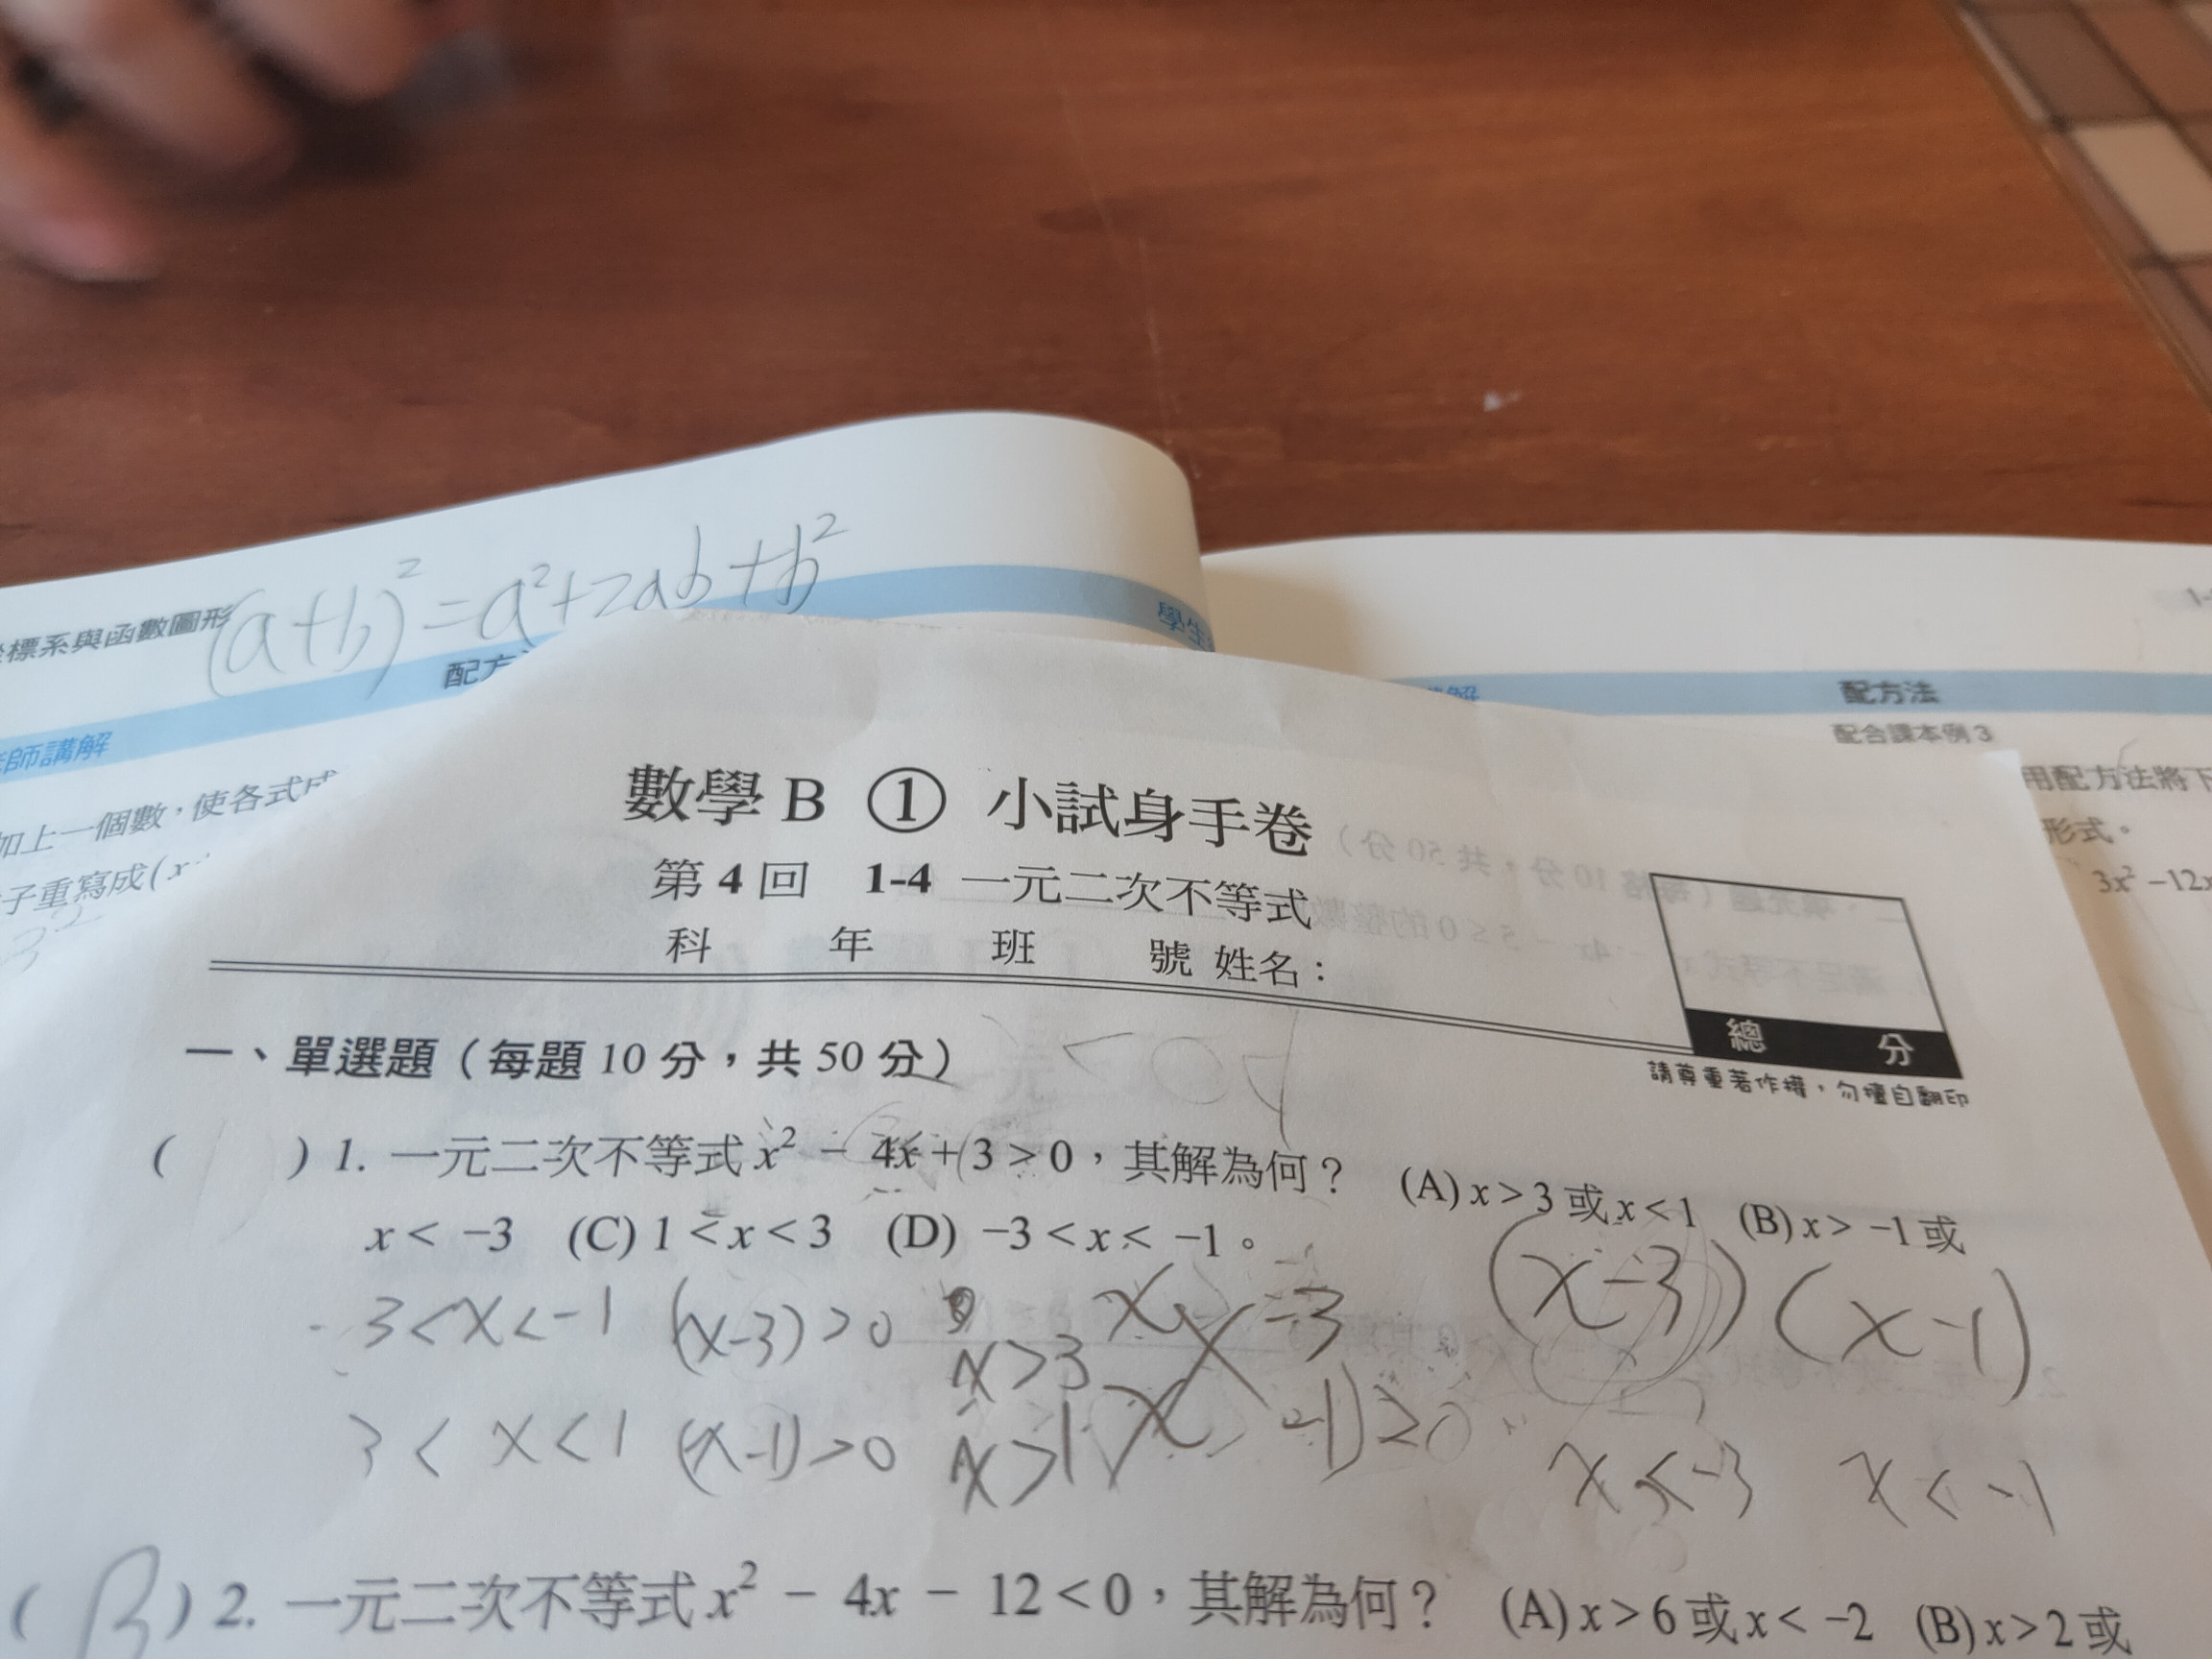 (a+b)²=a²+2ab+b²
標系與函數圖形
配方
學生
師講解
加上一個數，使各式成
子重寫成(x
3²
配方法
配合課本例3
用配方法將下
形式。
3x²－12x
數學 B ① 小試身手卷
第 4 回 1-4 一元二次不等式
科 年 班 號 姓名：
總 分
請尊重著作權，勿擅自翻印
一、單選題（每題 10 分，共 50 分）
( ) 1. 一元二次不等式 x² － 4x + 3 > 0，其解為何？ (A) x > 3 或 x < 1 (B) x > －1 或
x < －3 (C) 1 < x < 3 (D) －3 < x < －1。
-3<x<-1 (x-3)>0 x>3 x -3 (x-3)(x-1)
3<x<1 (x-1)>0 x>1 x -1)≥0 x<-3 x<-1
( B ) 2. 一元二次不等式 x² － 4x － 12 < 0，其解為何？ (A) x > 6 或 x < －2 (B) x > 2 或